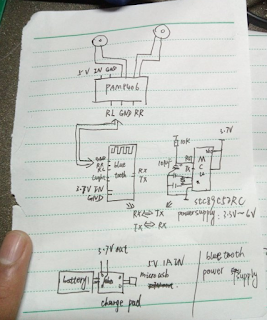 5V IN GND
PAM8406
RL GND RR
GND
RR
RL
Light
blue
tooth
RX
TX
3.7V IN
GND
3.7V
10K
10μF
Rst
MCU
RX ⇔ TX
TX ⇔ RX
STC89C52RC
power supply: 3.5V~6V
3.7V out
battery
5V 1A IN
micro usb
charge pad
blue tooth
power supply